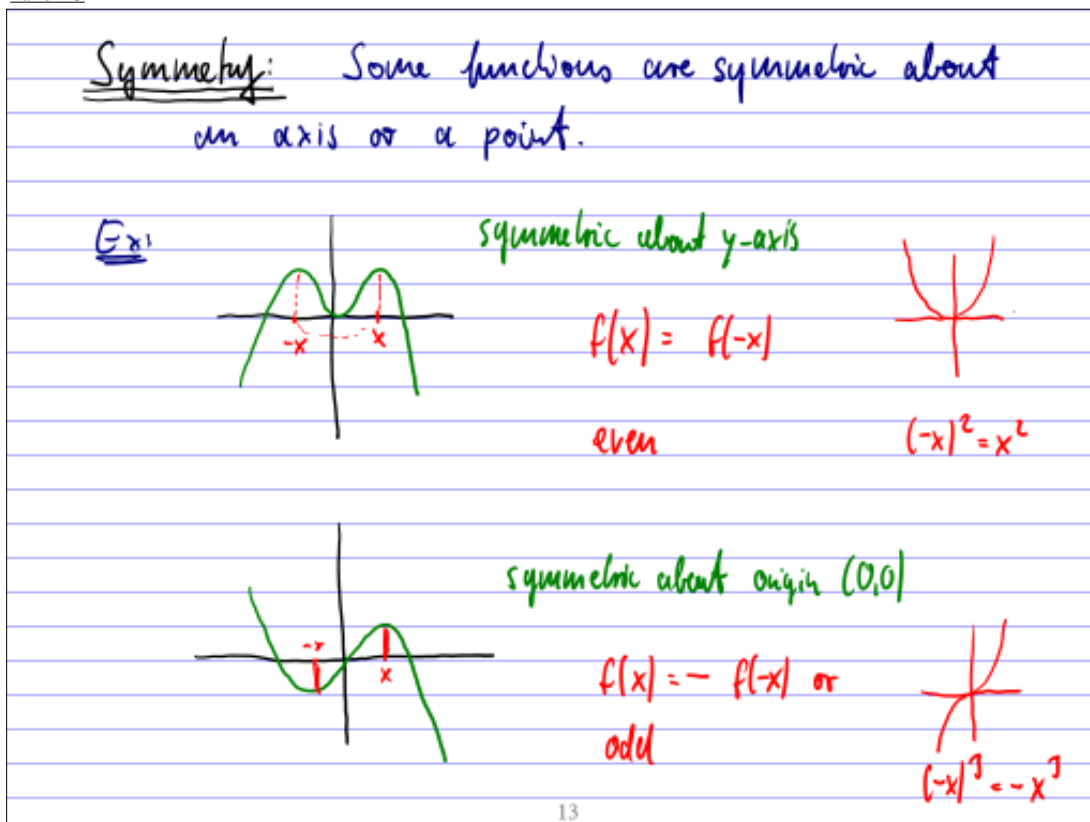 Symmetry: Some functions are symmetric about
an axis or a point.
Ex:
symmetric about y-axis
-x
x
f(x) = f(-x)
even
(-x)² = x²
symmetric about origin (0,0)
-x
x
f(x) = - f(-x) or
odd
(-x)³ = -x³
13